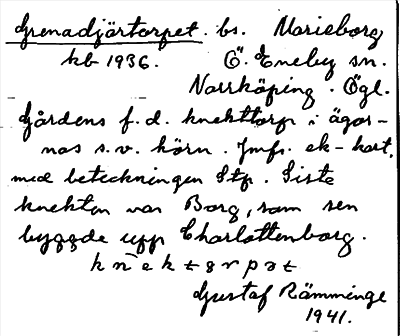 Grenadjärtorpet. bs. Marieborg
kb 1936. Ö. Eneby sn.
Norrköping. Ögl.
Gårdens f.d. knekttorp i ägor-
nas s.v. hörn. Jmfr. ek-kart.
med beteckningen Stp. Siste
knekten var Borg, som sen
byggde upp Charlottenborg.
Gustaf Rämminge
1941.